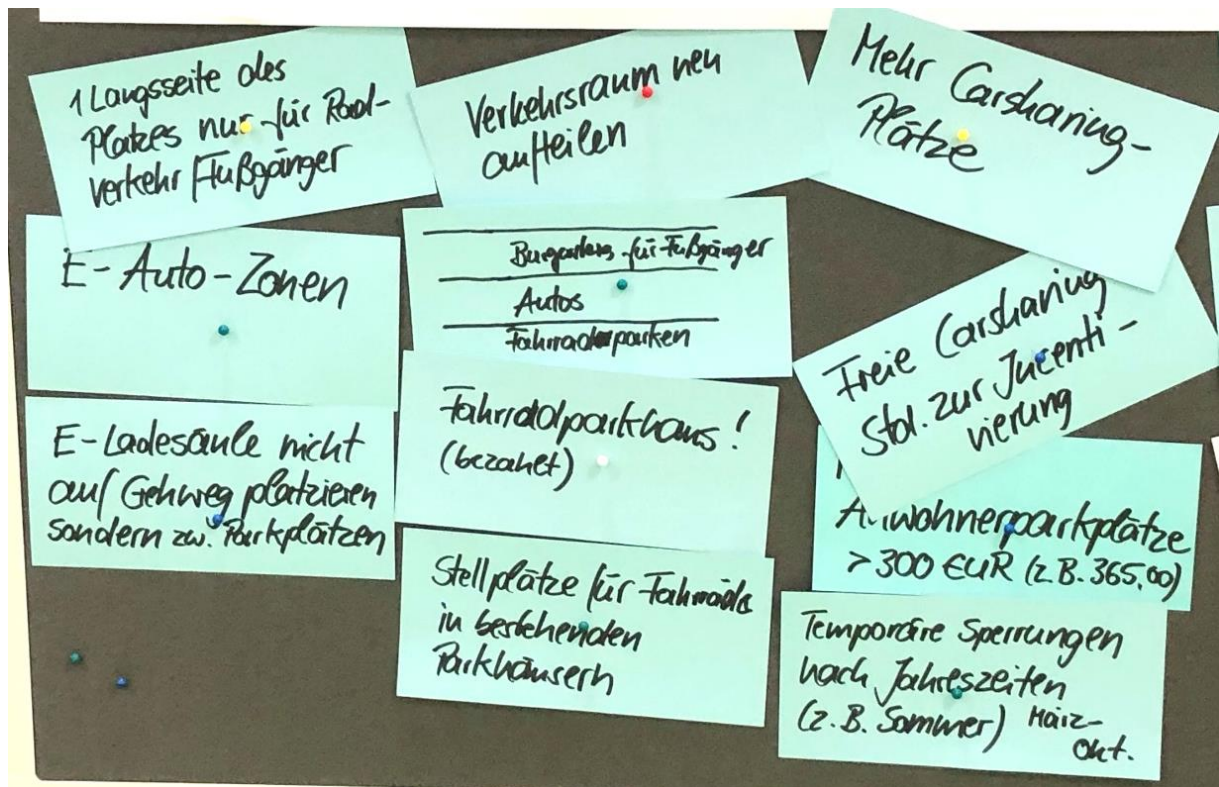 1 Längsseite des
Platzes nur für Rad-
verkehr/Fußgänger
Verkehrsraum neu
aufteilen
Mehr Carsharing-
Plätze
E-Auto-Zonen
Bürgersteig für Fußgänger
Autos
Fahrradparken
Freie Carsharing
Std. zur Incenti-
vierung
E-Ladesäule nicht
auf Gehweg platzieren
sondern zw. Parkplätzen
Fahrradparkhaus!
(bezahlt)
Anwohnerparkplätze
>300 EUR (z.B. 365,00)
Stellplätze für Fahrräder
in bestehenden
Parkhäusern
Temporäre Sperrungen
nach Jahreszeiten
(z.B. Sommer) März-
Okt.